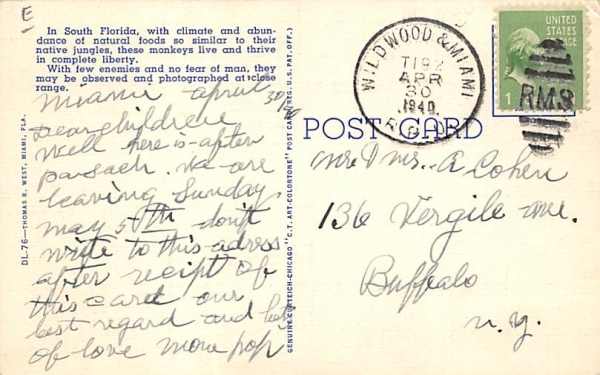 E
In South Florida, with climate and abun-
dance of natural foods so similar to their
native jungles, these monkeys live and thrive
in complete liberty.
With few enemies and no fear of man, they
may be observed and photographed at close
range.
Miami April 30/40
Dear children
Well here is after
passach. We are
leaving Sunday
May 5th don't
write to this adress
after recipt of
this card our
best regard and lots
of love mom pop
DL-76—THOMAS R. WEST, MIAMI, FLA.
GENUINE CURTEICH-CHICAGO "C.T. ART-COLORTONE" POST CARD (REG. U.S. PAT. OFF.)
POST CARD
WILDWOOD & MIAMI
T192
APR
30
1940
R.P.O.
UNITED
STATES
POSTAGE
1
RMS
Mr & Mrs. A Cohen
136 Vergile Ave.
Buffalo
N.Y.